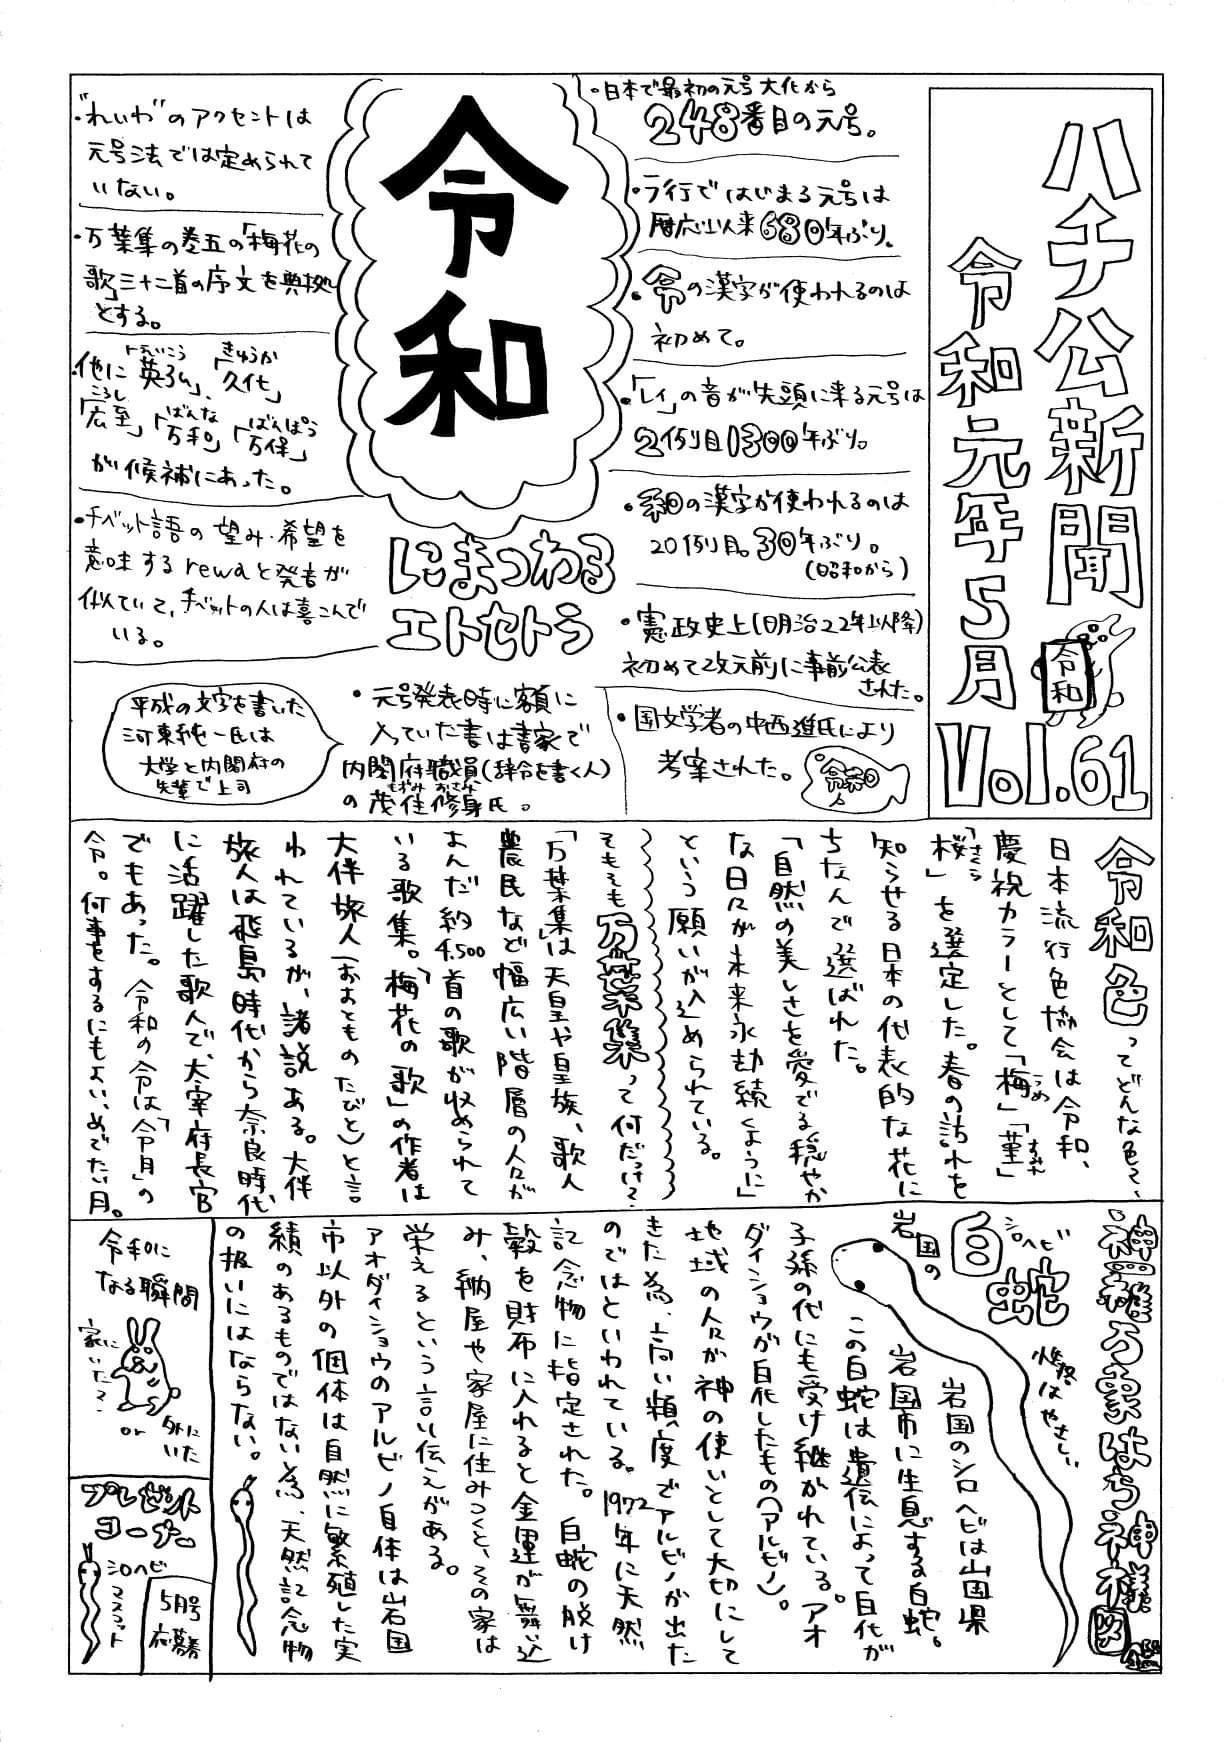 ハチ公新聞
令和元年5月
Vol.61
令和
・日本で最初の元号大化から
248番目の元号。
・ラ行ではじまる元号は
暦応以来680年ぶり。
・令の漢字が使われるのは
初めて。
・「レイ」の音が先頭に来る元号は
2例目1300年ぶり。
・和の漢字が使われるのは
20例目。30年ぶり。
(昭和から)
・憲政史上(明治22年以降)
初めて改元前に事前公表
された。
・国文学者の中西進氏により
考案された。
令和
令和
にまつわる
エトセトラ
・"れいわ"のアクセントは
元号法では定められて
いない。
・万葉集の巻五の「梅花の
歌」三十二首の序文を典拠
とする。
・他に「英弘」、「久化」
えいこう
きゅうか
「広至」「万和」「万保」
こうし
ばんな
ばんぽう
が候補にあった。
・チベット語の望み・希望を
意味するrewaと発音が
似ていて、チベットの人は喜こんで
いる。
・元号発表時に額に
入っていた書は書家で
内閣府職員(辞令を書く人)
の茂住修身氏。
もずみ おさみ
平成の文字を書いた
河東純一氏は
大学と内閣府の
先輩で上司
令和色ってどんな色?
日本流行色協会は令和、
慶祝カラーとして「梅」「菫」
うめ
すみれ
「桜」を選定した。春の訪れを
さくら
知らせる日本の代表的な花に
ちなんで選ばれた。
「自然の美しさを愛でる穏やか
な日々が未来永劫続くように」
という願いが込められている。
そもそも万葉集って何だっけ?
「万葉集」は天皇や皇族、歌人
農民など幅広い階層の人々が
よんだ約4,500首の歌が収められて
いる歌集。「梅花の歌」の作者は
大伴旅人(おおとものたびと)と言
われているが、諸説ある。大伴
旅人は飛鳥時代から奈良時代
に活躍した歌人で、大宰府長官
でもあった。令和の令は「令月」の
令。何事をするにもよい、めでたい月。
神羅万象はち神様図鑑
岩国の
白蛇
シロヘビ
性格はやさしい
岩国のシロヘビは山国県
岩国市に生息する白蛇。
この白蛇は遺伝によって白化が
子孫の代にも受け継がれている。アオ
ダイショウが白化したもの(アルビノ)。
地域の人々が神の使いとして大切にして
きた為、高い頻度でアルビノが出た
のではといわれている。1972年に天然
記念物に指定された。白蛇の脱け
殻を財布に入れると金運が舞い込
み、納屋や家屋に住みつくと、その家は
栄えるという言い伝えがある。
アオダイショウのアルビノ自体は岩国
市以外の個体は自然に繁殖した実
績のあるものではない為、天然記念物
の扱いにはならない。
令和に
なる瞬間
家に
いた?
or
外に
いた
プレゼント
コーナー
シロヘビ
マスコット
5月号
応募券